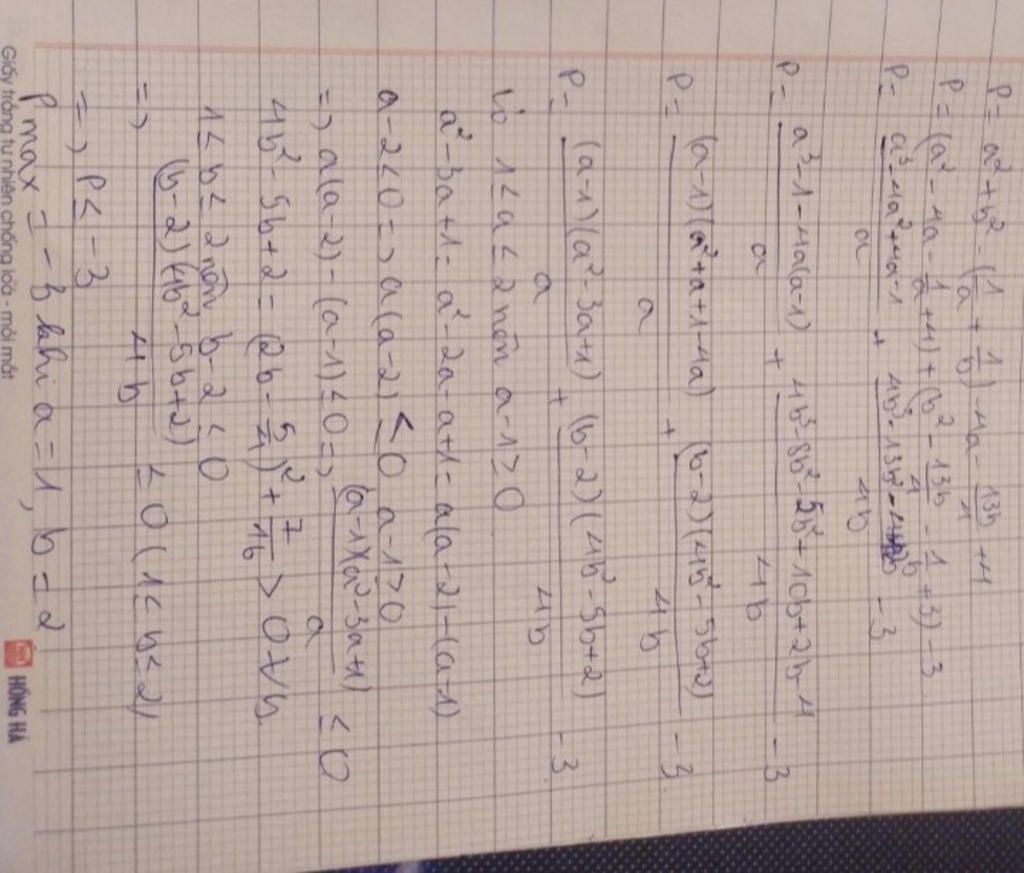 P = a² + b² - (1/a + 1/b) - 4a - 13b/4 + 4
P = (a² - 4a - 1/a + 4) + (b² - 13b/4 - 1/b + 3) - 3
P = (a³ - 4a² + 4a - 1)/a + - 3
P = (a³ - 1 - 4a(a-1))/a + (4b³ - 8b² - 5b² + 10b + 2b - 4)/4b - 3
P = (a-1)(a² + a + 1 - 4a)/a + (b-2)(4b² - 5b + 2)/4b - 3
P = (a-1)(a² - 3a + 1)/a + (b-2)(4b² - 5b + 2)/4b - 3
Vì 1 ≤ a ≤ 2 nên a - 1 ≥ 0
a² - 3a + 1 = a² - 2a - a + 1 = a(a-2) - (a-1)
a - 2 ≤ 0 => a(a-2) ≤ 0 a - 1 ≥ 0
=> a(a-2) - (a-1) ≤ 0 => (a-1)(a² - 3a + 1)/a ≤ 0
4b² - 5b + 2 = (2b - 5/4)² + 7/16 > 0 ∀b
1 ≤ b ≤ 2 nên b - 2 ≤ 0
=> (b-2)(4b² - 5b + 2)/4b ≤ 0 (1 ≤ b ≤ 2)
=> P ≤ -3
P max = -3 khi a = 1, b = 2
Giấy trắng tự nhiên chống loá - mỏi mắt
HỒNG HÀ